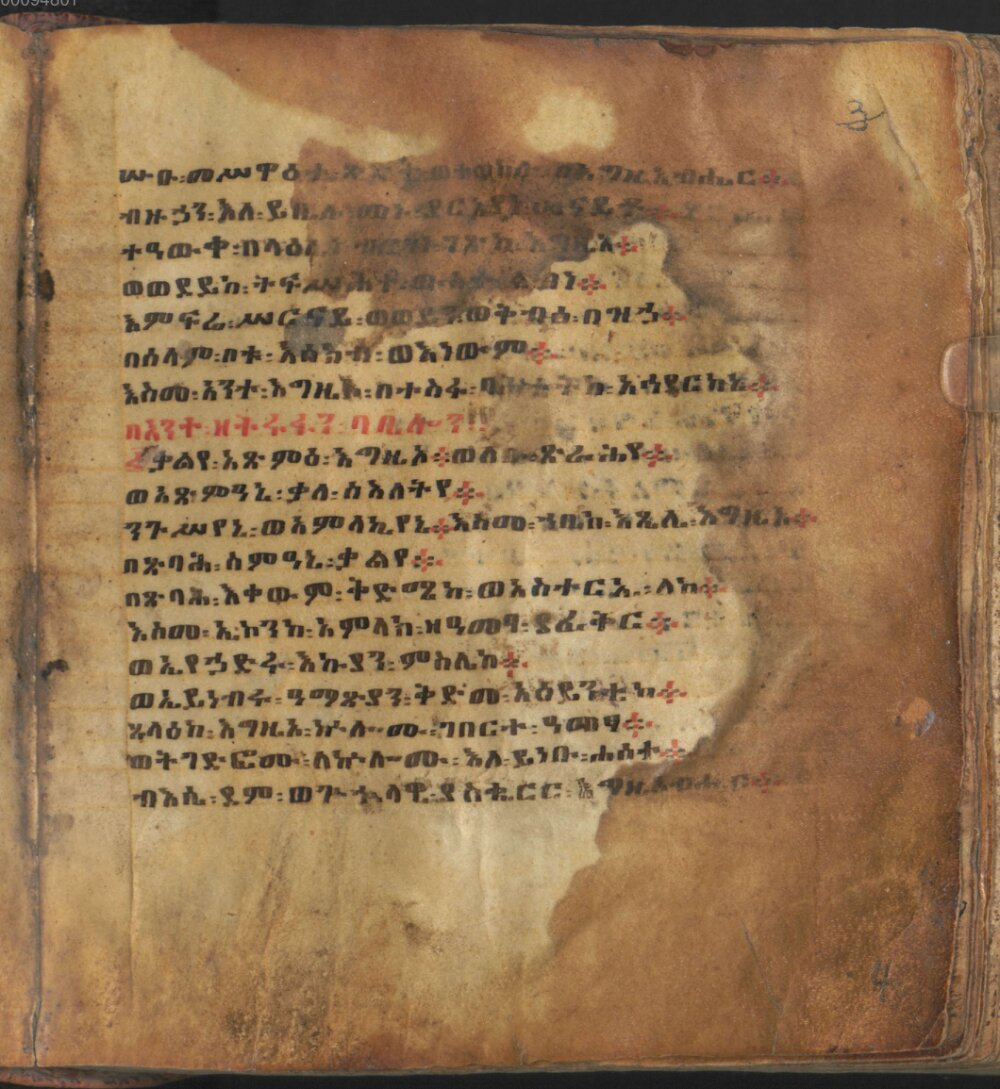 00094801
3
ሡዑ፡መሥዋዕተ፡ጽድቅ፡ወተወከሉ፡በእግዚአብሔር፨
ብዙኃን፡እለ፡ይቤሉ፡መኑ፡ያርእየነ፡ሠናይቶ፨
ተዓውቀ፡በላዕሌነ፡ብርሃነ፡ገጽከ፡እግዚኦ፨
ወወደይከ፡ትፍሥሕተ፡ውስተ፡ልብነ፨
እምፍሬ፡ሥርናይ፡ወወይን፡ወቅብዕ፡በዝኀ፨
በሰላም፡ቦቱ፡እሰክብ፡ወእነውም፨
እስመ፡አንተ፡እግዚኦ፡በተስፋ፡ባሕቲትከ፡አኅደርከኒ፨
በእንተ፡ዘትሩፋን፡ባቢሎን፡
ቃልየ፡አጽምዕ፡እግዚኦ፨ወለቡ፡ጽራሕየ፨
ወአጽምዓኒ፡ቃለ፡ስእለትየ፨
ንጉሥየኒ፡ወአምላኪየኒ፨እስመ፡ኀቤከ፡እጼሊ፡እግዚኦ፨
በጽባሕ፡ስምዓኒ፡ቃልየ፨
በጽባሕ፡እቀውም፡ቅድሜከ፡ወአስተርኢ፡ለከ፨
እስመ፡ኢኮንከ፡አምላከ፡ዘዓመፃ፡ያፈቅር፨
ወኢየኃድሩ፡እኩያን፡ምስሌከ፨
ወኢይነብሩ፡ዓማጽያን፡ቅድመ፡አዕይንቲከ፨
ጸላዕከ፡እግዚኦ፡ኵሎሙ፡ገበርተ፡ዓመፃ፨
ወትገድፎሙ፡ለኵሎሙ፡እለ፡ይነቡ፡ሐሰተ፨
ብእሴ፡ደም፡ወጕኂላዊ፡ያስቈርር፡እግዚአብሔር፨
4